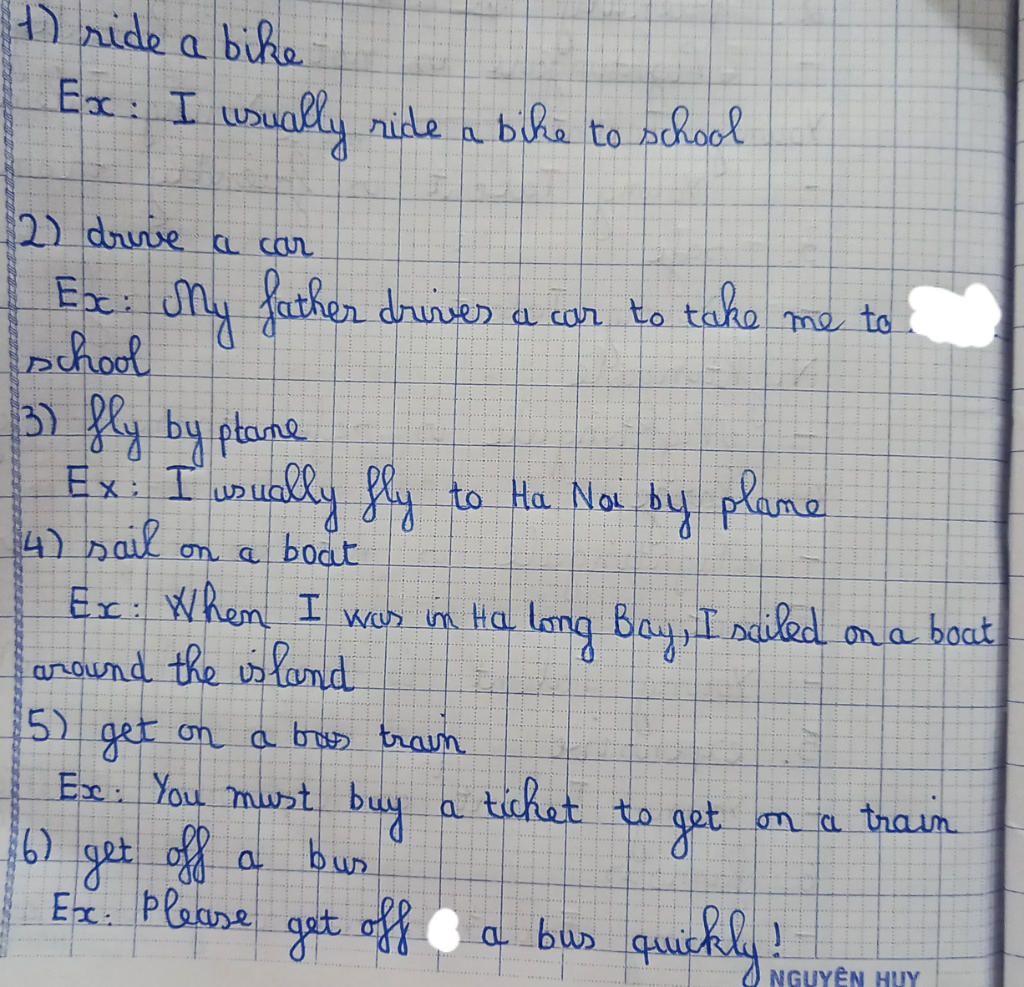 1) ride a bike
Ex: I usually ride a bike to school
2) drive a car
Ex: My father drives a car to take me to
school
3) fly by plane
Ex: I usually fly to Ha Noi by plane
4) sail on a boat
Ex: When I was in Ha long Bay, I sailed on a boat
around the island
5) get on a train
Ex: You must buy a ticket to get on a train
6) get off a bus
Ex: Please get off a bus quickly!
NGUYÊN HUY